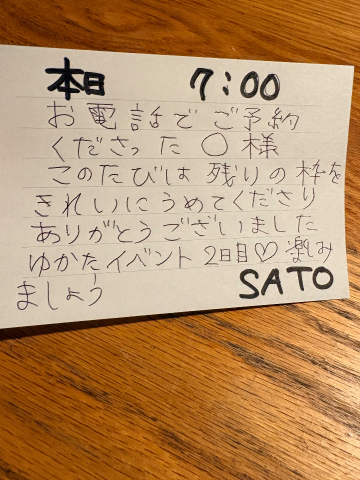 本日 7:00
お電話でご予約
くださった〇様
このたびは残りの枠を
きれいにうめてくださり
ありがとうございました
ゆかたイベント2日目♡楽しみ
ましょう
SATO